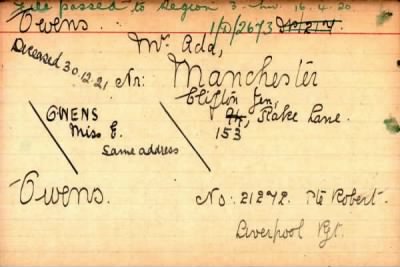 File passed to Region 3. 16.4.20
Owens 1/D/2673
Mr. Add,
Deceased 30.12.21 Nr: Manchester
Clifton Jen,
94, Rake Lane.
153
OWENS
Miss E.
Same address
Owens. No: 21272. Pte Robert.
Liverpool Rgt.